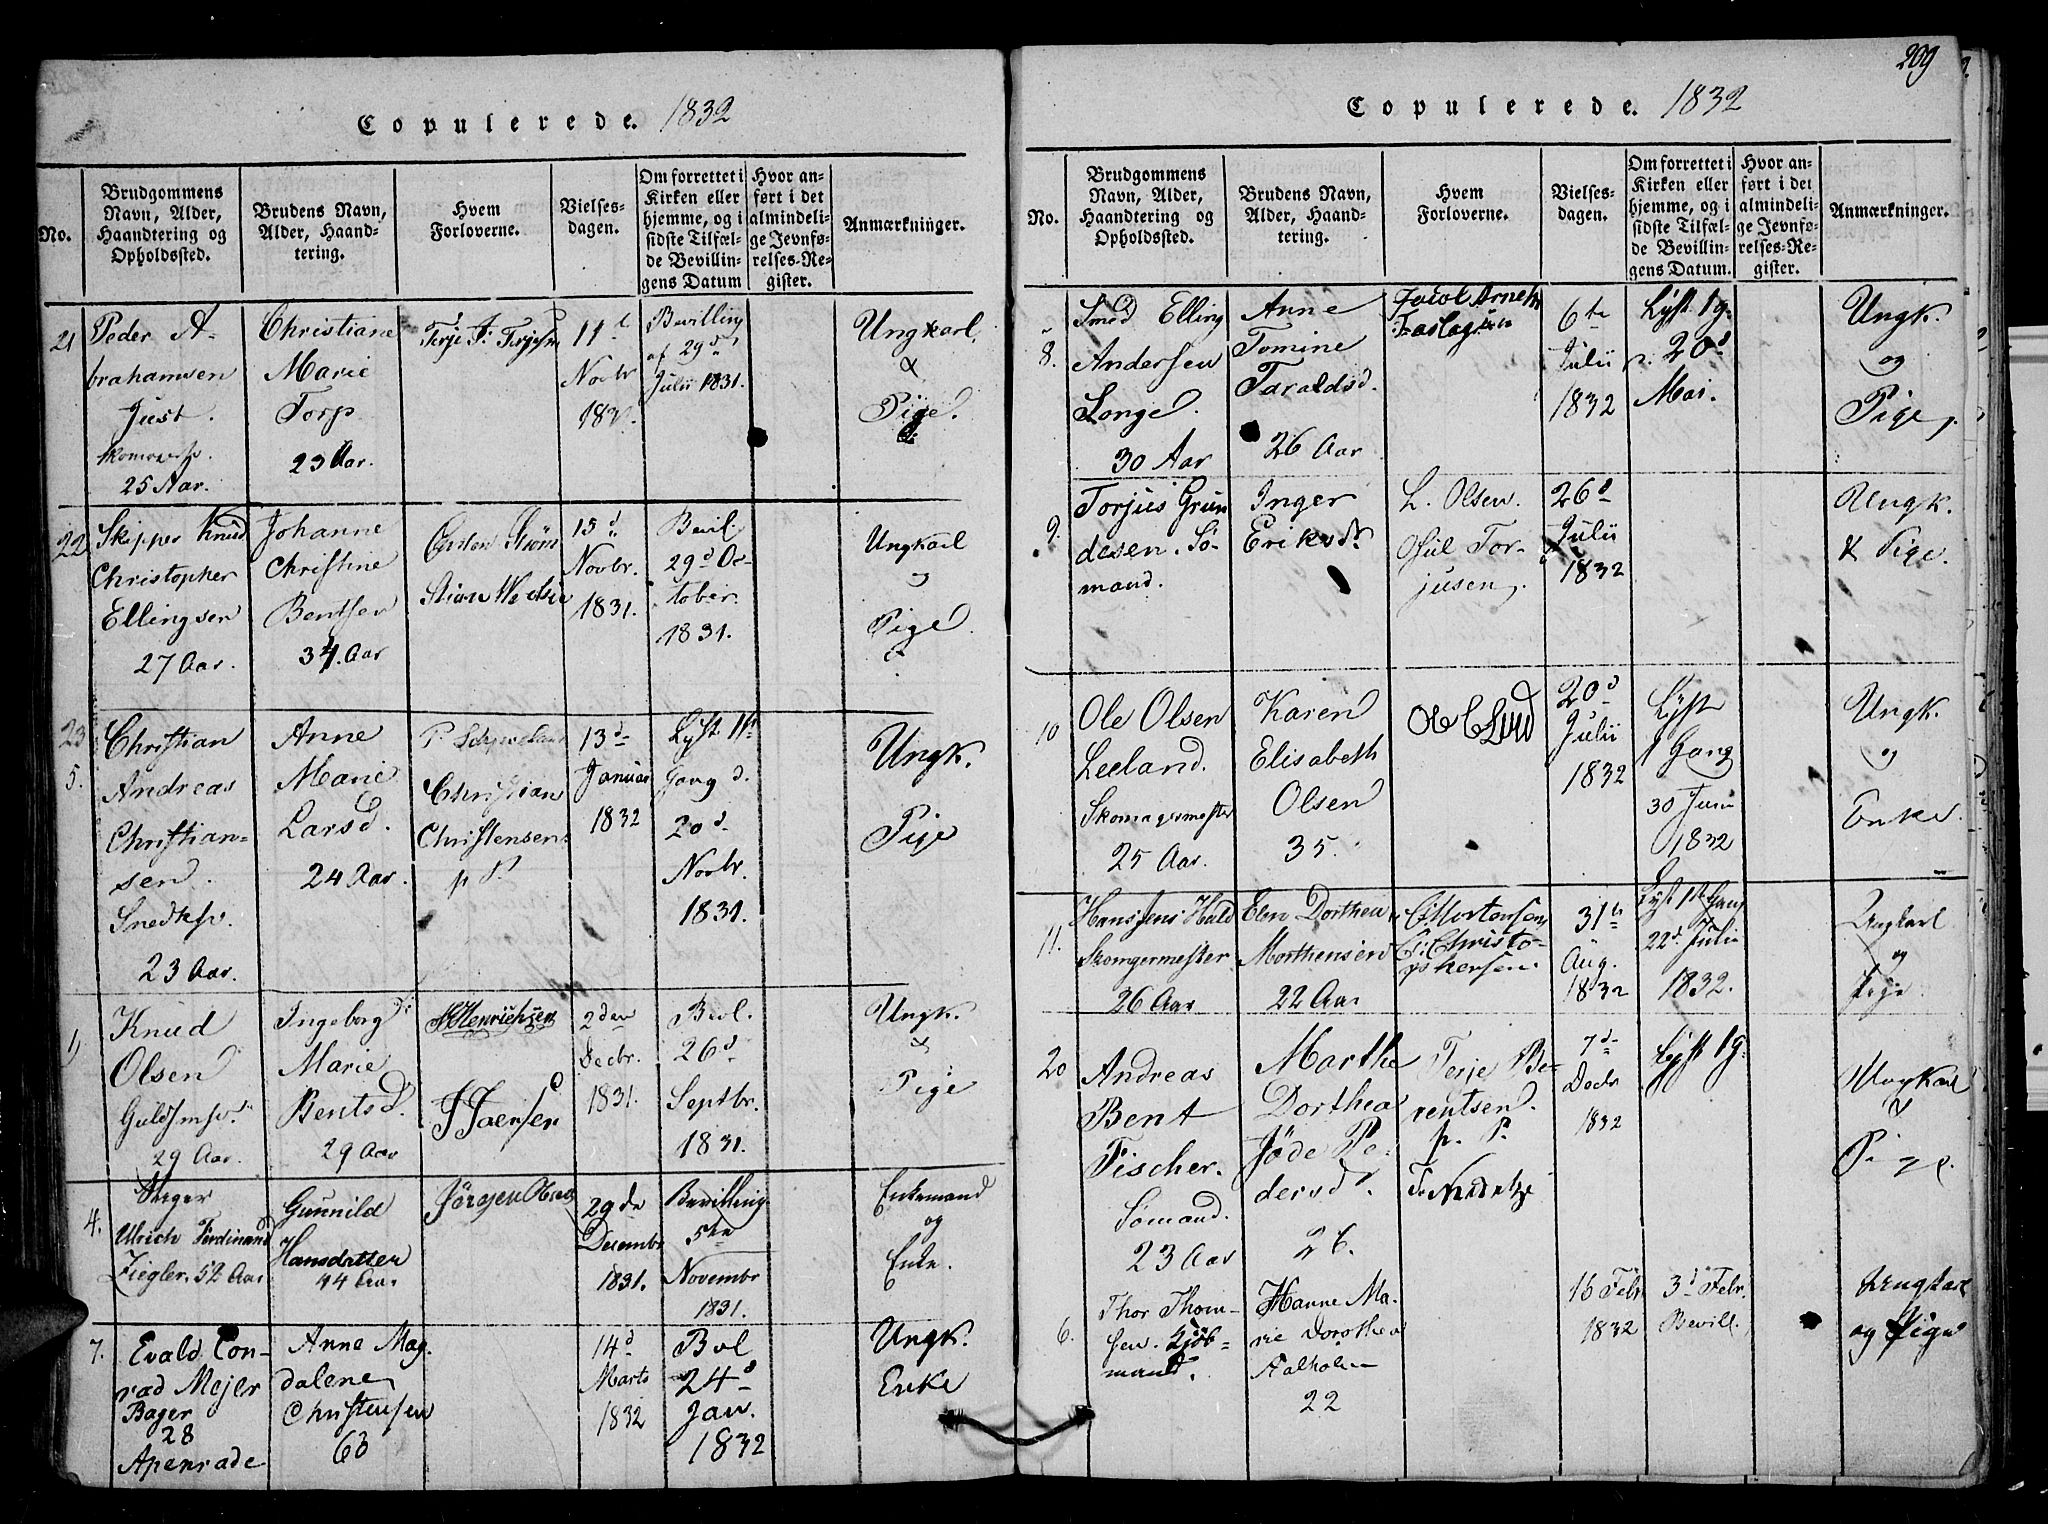 Copulerede. 1832
No.
Brudgommens
Navn, Alder,
Haandtering og
Opholdssted.
Brudens Navn,
Alder, Haand-
tering.
Hvem
Forloverne.
Vielses-
dagen.
Om forrettet i
Kirken eller
hjemme, og i
sidste Tilfæl-
de Bevillin-
gens Datum
Hvor an-
ført i det
almindeli-
ge Jevnfø-
relses-Re-
gister.
Anmærkninger.
21
Peder A-
brahamsen
Just.
25 Aar.
Christiane
Marie
Torp
23 Aar.
Terje F. Terjesen
11t
Novbr
Bevilling
af 29d
Julii 1831.
Ungkarl
&
Pige.
22
Skipper Knud
Christopher
Ellingsen
27 Aar.
Johanne
Christine
Bentsen
34. Aar
15d
Novbr.
1831.
Bevil.
29d Oc-
tober.
1831.
Ungkarl
Pige
23
5.
Christian
Andreas
Christian-
sen.
23 Aar.
Anne
Marie
Larsd.
24 Aar.
Christian
Christensen
13d
Januar
1832
Lyst 1ste
Gang d.
20d
Novbr.
1831.
Ungk.
Pige
1)
Knud
Olsen
29 Aar.
Ingeborg
Marie
Bentsd.
29 Aar
Henrichsen
2den
Decbr.
1831.
Bevl.
26d
Septbr.
1831.
Ungk.
&
Pige
4.
Ulrich Ferdinand
Ziegler. 52 Aar
Gunnild
Hansdatter
44 Aar
Jörgen
29de
Decembr
1831.
Bevilling
5te
Novembr
1831.
Enkemand
og
Enke.
7.
Evald Con-
rad Mejer
Bager
28
Apenrade
Anne Mag-
dalene
Christensen
63
14d
Marts
1832
Bvl
24d
Jan.
1832
Ungk.
Enke
209
Copulerede. 1832
No.
Brudgommens
Navn, Alder,
Haandtering og
Opholdssted.
Brudens Navn,
Alder, Haand-
tering.
Hvem
Forloverne.
Vielses-
dagen.
Om forrettet i
Kirken eller
hjemme, og i
sidste Tilfæl-
de Bevillin-
gens Datum.
Hvor an-
ført i det
almindeli-
ge Jevnfø-
relses-Re-
gister.
Anmærkninger.
8.
Smed Elling
Andersen
Longe.
30 Aar
Anne
Tomine
Taraldsd.
26 Aar
6te
Julii
1832
Lyst 1g.
20d
Mai.
Ungk.
og
Pige.
9.
Torjus Grun
desen. Sö-
mand.
Inger
Eriksdr.
L. Olsen.
Tor-
jusen.
26d
Julii
1832
Ungk.
& Pige.
10
Ole Olsen
Leeland.
Skomagermester
25 Aar.
Karen
Elisabeth
Olsen
35.
Lund
20d
Julii
1832
Lyst
1 Gang
30 Juni
1832
Ungk.
og
Enke.
11.
Hans Jens Hald
Skomgermester
26 Aar
Dorthea
Morthensen
22 Aar
Mortensen
Christo-
phersen.
31te
Aug.
1832
Lyst 1ste Gang
22d Julii
1832.
Ungkarl
og
Pige.
20
Andreas
Bent
Fischer.
Sömand.
23 Aar
Marthe
Dorthea
Jöde Pe-
dersd.
26.
Terje Be-
rentsen.
p. P.
7d
Decbr
1832
Lyst 1g.
Ungkarl
&
Pige.
6.
Thor Thom-
sen. Kjöb-
mand.
Hanne Ma-
rie Dorothea
Aalholm
22
16 Febr
1832
3d Febr.
Bevill.
Ungkarl
og Pige